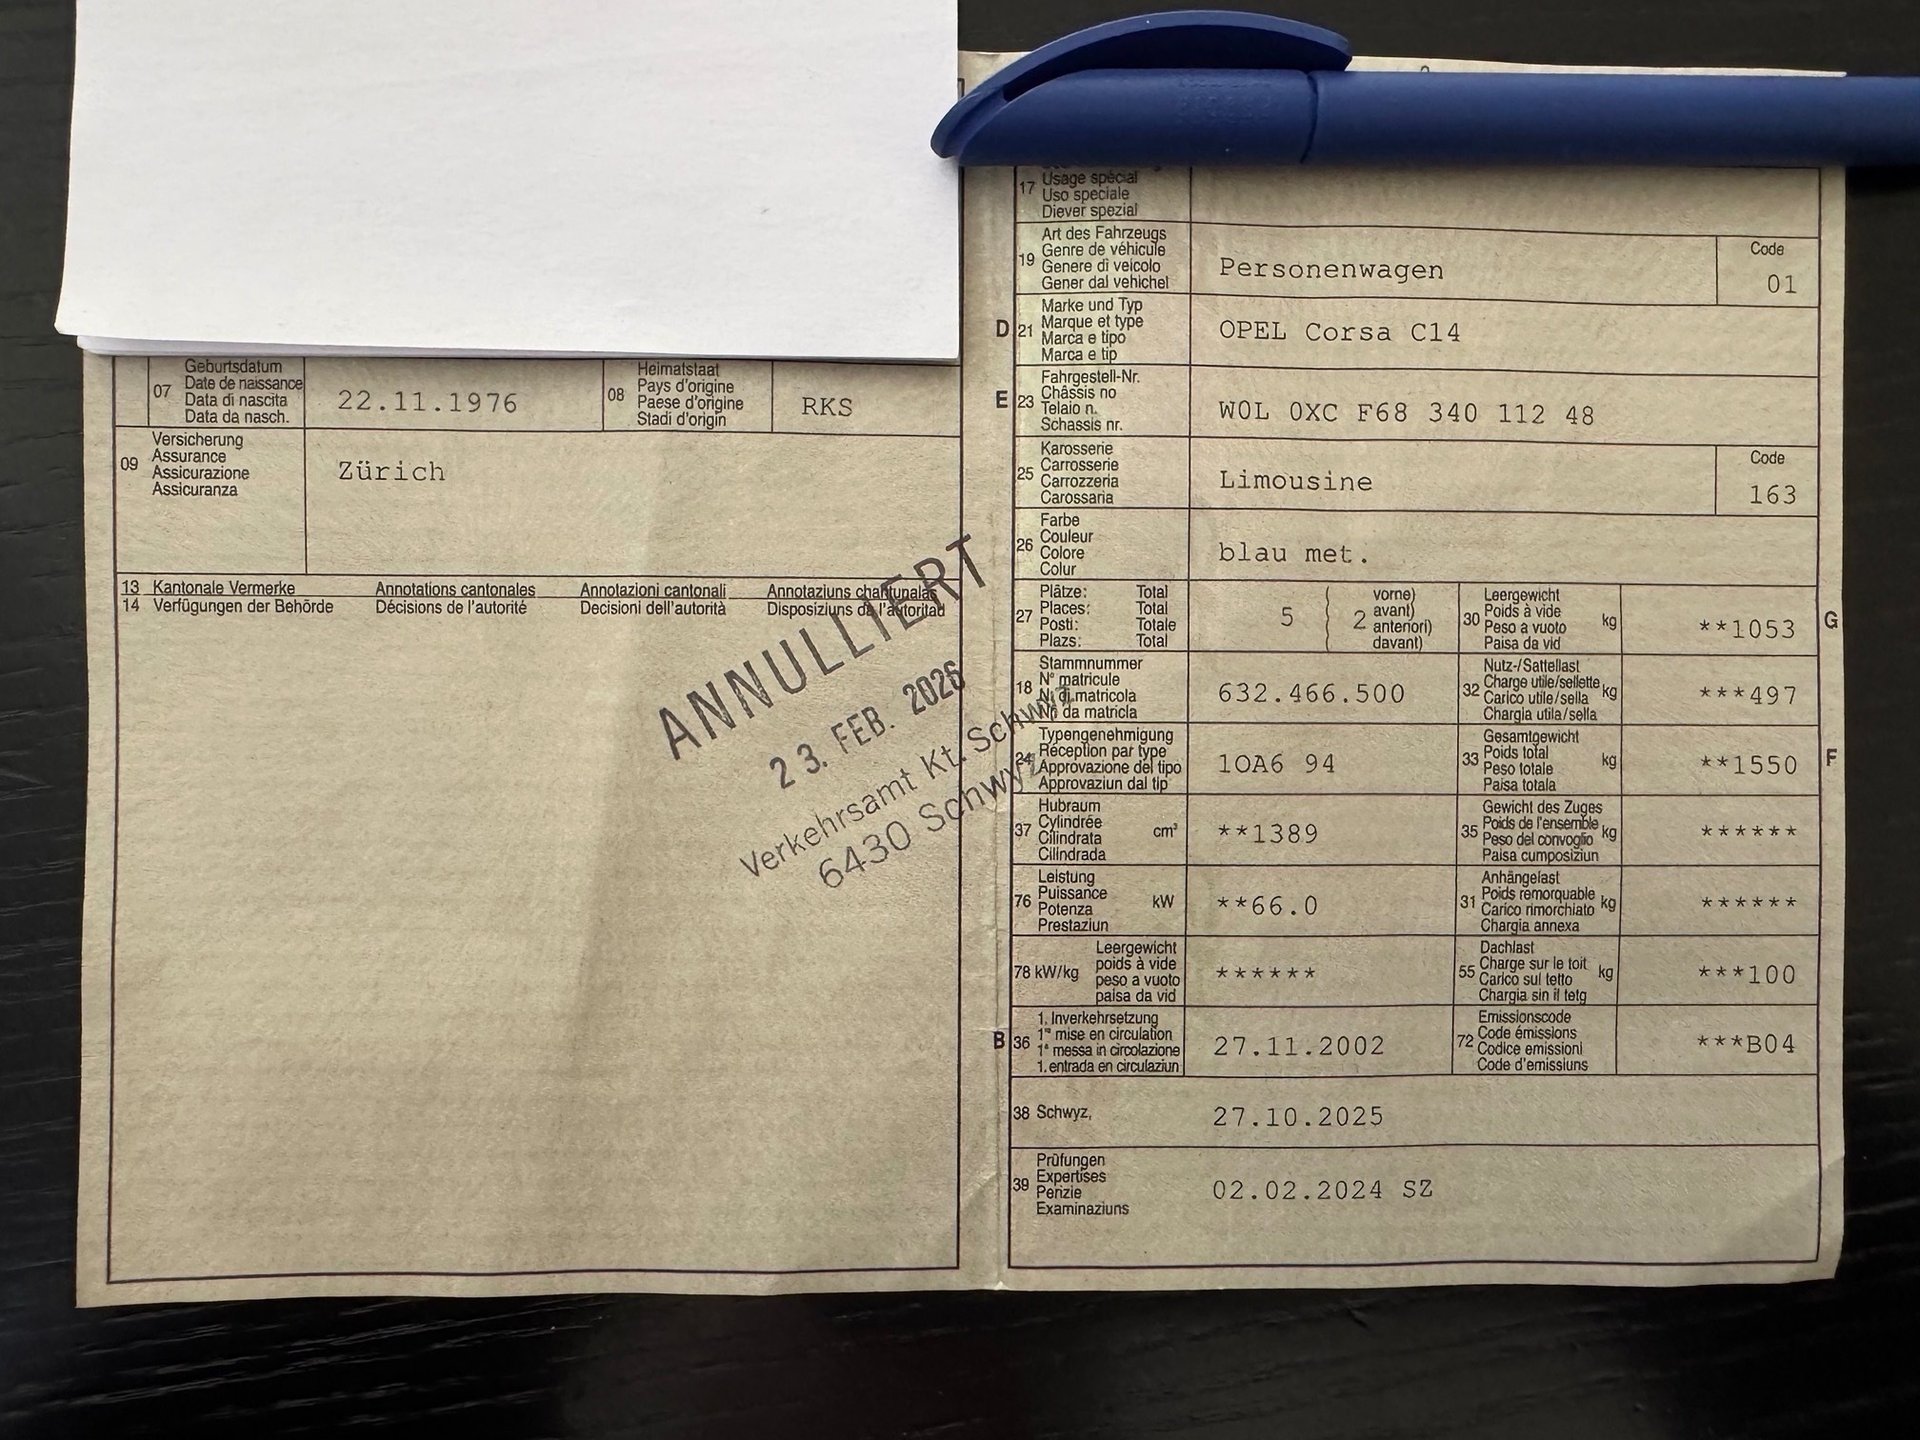 07 Geburtsdatum
Date de naissance
Data di nascita
Data da nasch.
22.11.1976
08 Heimatstaat
Pays d'origine
Paese d'origine
Stadi d'origin
RKS
09 Versicherung
Assurance
Assicurazione
Assicuranza
Zürich
13 Kantonale Vermerke Annotations cantonales Annotazioni cantonali Annotaziuns chantunalas
14 Verfügungen der Behörde Décisions de l'autorité Decisioni dell'autorità Disposiziuns da l'autoritad
ANNULLIERT
23. FEB. 2026
Verkehrsamt Kt. Schwyz
6430 Schwyz
17 Usage spécial
Uso speciale
Diever spezial
19 Art des Fahrzeugs
Genre de véhicule
Genere di veicolo
Gener dal vehichel
Personenwagen
Code
01
D 21 Marke und Typ
Marque et type
Marca e tipo
Marca e tip
OPEL Corsa C14
E 23 Fahrgestell-Nr.
Châssis no
Telaio n.
Schassis nr.
W0L 0XC F68 340 112 48
25 Karosserie
Carrosserie
Carrozzeria
Carossaria
Limousine
Code
163
26 Farbe
Couleur
Colore
Colur
blau met.
27 Plätze: Total
Places: Total
Posti: Totale
Plazs: Total
5
2
vorne)
avant)
anteriori)
davant)
30 Leergewicht
Poids à vide
Peso a vuoto
Paisa da vid
kg
**1053
G
18 Stammnummer
N° matricule
N. di matricola
Nr. da matricla
632.466.500
32 Nutz-/Sattellast
Charge utile/sellette
Carico utile/sella
Chargia utila/sella
kg
***497
24 Typengenehmigung
Réception par type
Approvazione del tipo
Approvaziun dal tip
1OA6 94
33 Gesamtgewicht
Poids total
Peso totale
Paisa totala
kg
**1550
F
37 Hubraum
Cylindrée
Cilindrata
Cilindrada
cm³
**1389
35 Gewicht des Zuges
Poids de l'ensemble
Peso del convoglio
Paisa cumposiziun
kg
******
76 Leistung
Puissance
Potenza
Prestaziun
kW
**66.0
31 Anhängelast
Poids remorquable
Carico rimorchiato
Chargia annexa
kg
******
78 kW/kg
Leergewicht
poids à vide
peso a vuoto
paisa da vid
******
55 Dachlast
Charge sur le toit
Carico sul tetto
Chargia sin il tetg
kg
***100
B 36 1. Inverkehrsetzung
1re mise en circulation
1a messa in circolazione
1. entrada en circulaziun
27.11.2002
72 Emissionscode
Code émissions
Codice emissioni
Code d'emissiuns
***B04
38 Schwyz,
27.10.2025
39 Prüfungen
Expertises
Perizie
Examinaziuns
02.02.2024 SZ